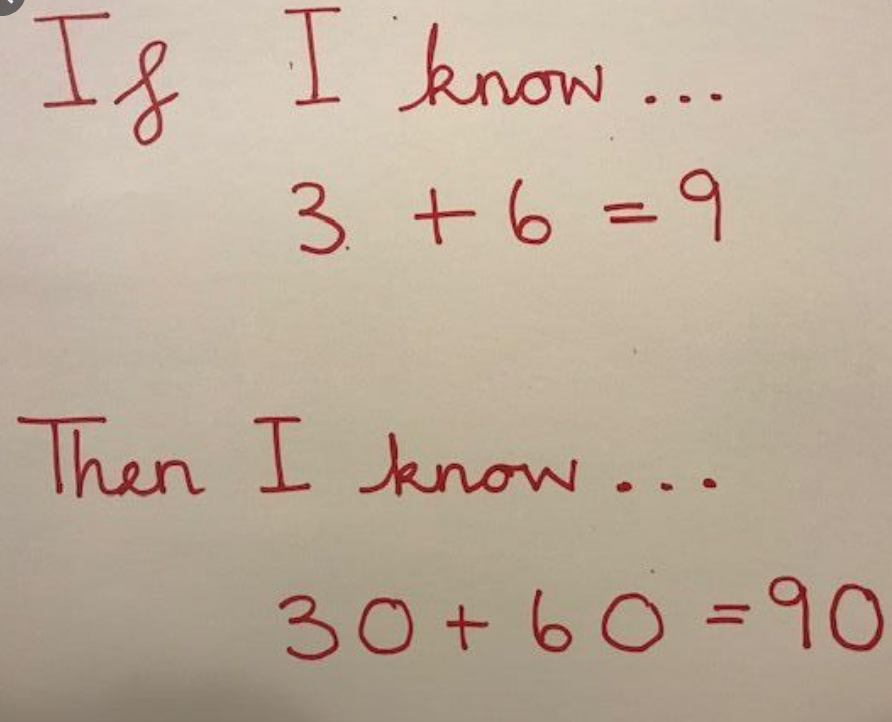 If I know ...
3 + 6 = 9
Then I know ...
30 + 60 = 90